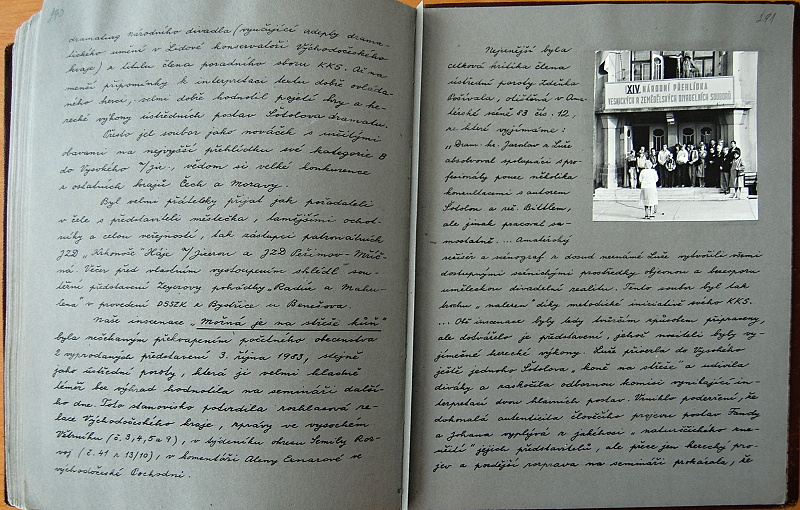 190
dramaturg národního divadla (vyučující adepty drama-
tického umění v Lidové konservatoři Východočeského
kraje) z titulu člena poradního sboru KKS. Až na
menší připomínky k interpretaci textu dobře ovláda-
ného herci, velmi dobře hodnotil pojetí hry a he-
recké výkony ústředních postav Šotolova dramatu.
Přesto jel soubor jako nováček s určitými
obavami na nejvyšší přehlídku své kategorie B
do Vysokého n/Jiz., vědom si velké konkurence
z ostatních krajů Čech a Moravy.
Byl velmi přátelsky přijat jak pořadateli
v čele s představiteli městečka, tamějšími ochot-
níky a celou veřejností, tak zástupci patronátních
JZD „Krkonoše" Háje n/Jizerou a JZD Peřimov-Mříč-
ná. Večer před vlastním vystoupením shlédl sou-
těžní představení Zeyerovy pohádky „Radúz a Mahu-
lena" v provedení DSSZK z Bystřice u Benešova.
Naše inscenace „Možná je na střeše kůň"
byla nečekaným překvapením početného obecenstva
2 vyprodaných představení 3. října 1983, stejně
jako ústřední poroty, která ji velmi kladně
téměř bez výhrad hodnotila na semináři další-
ho dne. Toto stanovisko potvrdila rozhlasová re-
lace Východočeského kraje, zprávy ve vysockém
Větrníku (č. 3, 4, 5 a 9), v týdeníku okresu Semily Roz-
voj (č. 41 z 13/10), v komentáři Aleny Exnarové ve
východočeské Pochodni.
191
Nejcennější byla
celková kritika člena
ústřední poroty Zdeňka
Pošívala, otištěná v Ama-
térské scéně 83 čís. 12,
ze které vyjímáme:
„Dram. kr. Jaroslav z Luže
absolvoval spolupráci s pro-
fesionály pouze několika
konsultacemi s autorem
Šotolou a rež. Bittlem,
ale jinak pracoval sa-
mostatně. ... Amatérský
režisér a scénograf z dosud neznámé Luže vytvořili všemi
dostupnými scénickými prostředky objevnou a bezesporu
uměleckou divadelní realitu. Tento soubor byl tak
trochu „nalezen" díky metodické iniciativě svého KKS.
... Obě inscenace byly tedy tvůrčím způsobem připraveny,
ale dotvářelo je představení, jehož nositeli byly vý-
jimečné herecké výkony. Luže přivezla do Vysokého
ještě jednoho Šotolova „koně na střeše" a udivila
diváky a zaskočila odbornou komisi vynikající in-
terpretací dvou hlavních postav. Vzniklo podezření, že
dokonalá autenticita člověčího projevu postav Fandy
a Johana vyplývá z jakéhosi „naturščického zne-
užití" jejich představitelů, ale přece jen herecký pro-
jev a pozdější rozprava na semináři prokázala, že
XIV. NÁRODNÍ PŘEHLÍDKA
VESNICKÝCH A ZEMĚDĚLSKÝCH DIVADELNÍCH SOUBORŮ